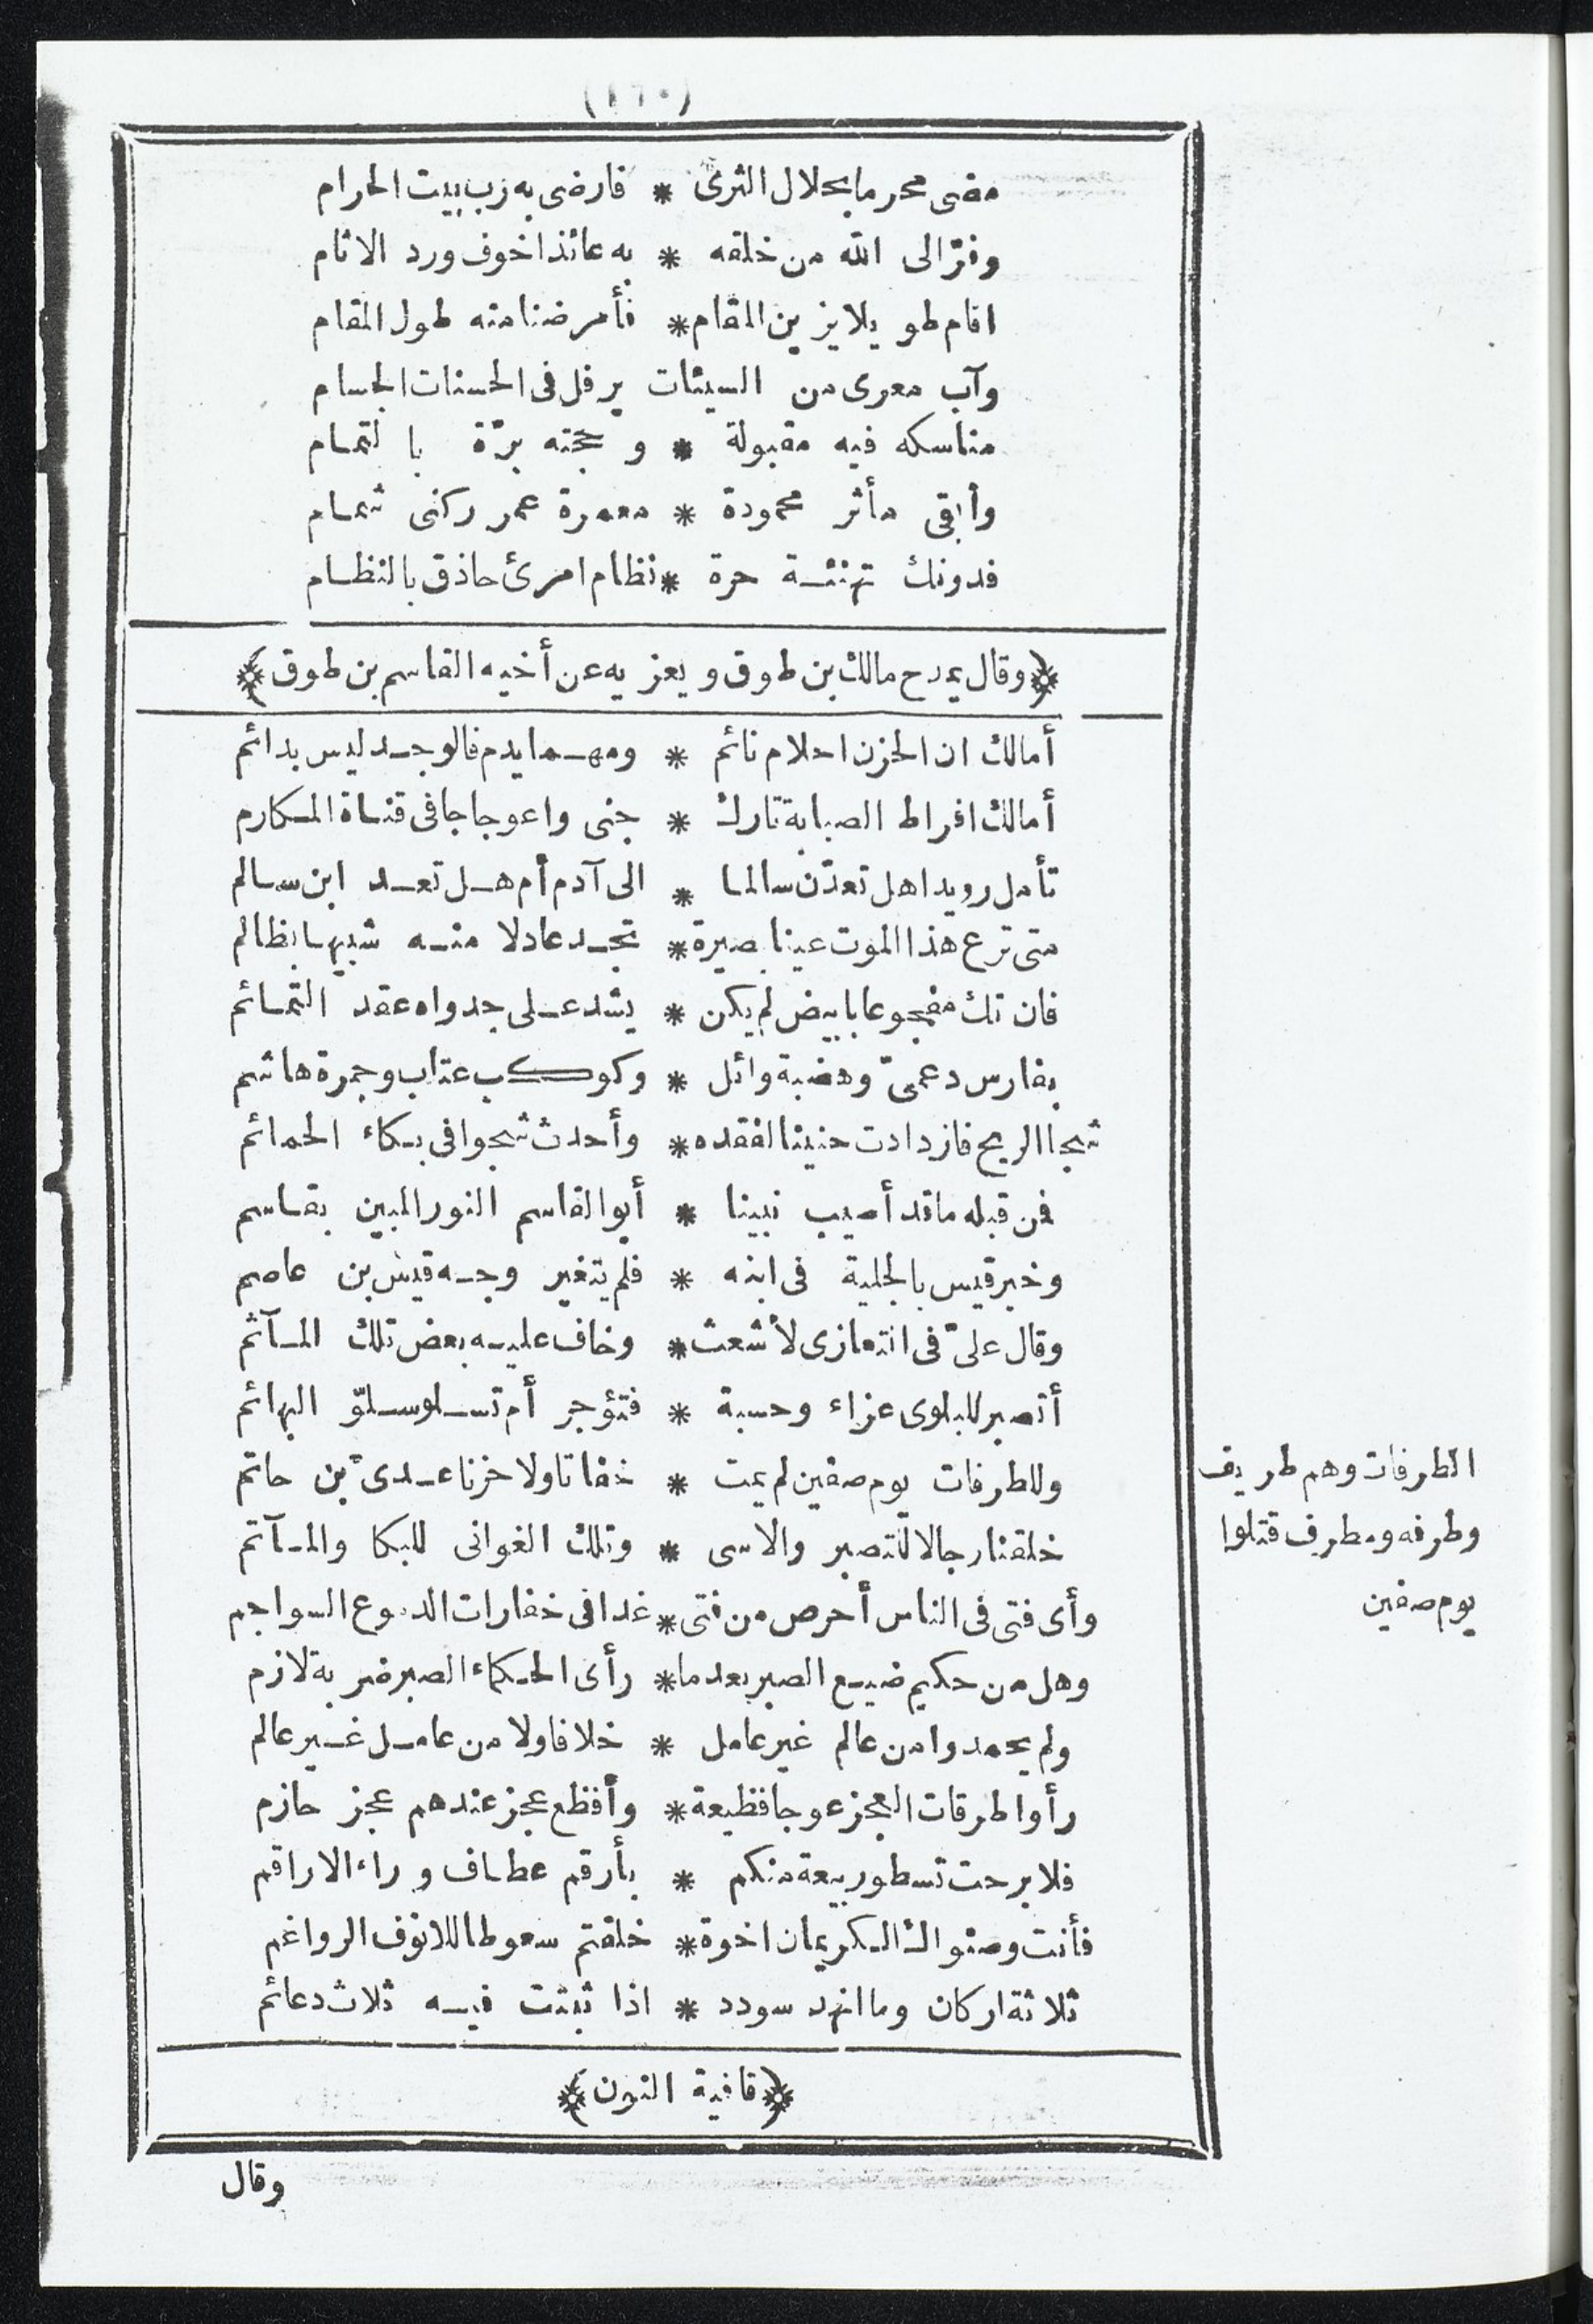 مضى محرما بحلال الثرى * فارضى به رب بيت الحرام
وفرّ الى الله من خلقه * به عائذا خوف ورد الاثام
اقام طويلا يزين المقام * فأمرضنا منه طول المقام
وآب معرى من السيئات يرفل فى الحسنات الجسام
مناسكه فيه مقبولة * وحجته برّة بالتمام
وأبقى مأثر محمودة * معمرة عمر ركنى شمام
فدونك تهنئة حرة * نظام امرئ حاذق بالنظام
﴿وقال يمدح مالك بن طوق ويعزيه عن أخيه القاسم بن طوق﴾
أمالك ان الحزن احلام نائم * ومهما يدم فالوجد ليس بدائم
أمالك افراط الصبابة تارك * جنى واعوجاجا فى قناة المكارم
تأمل رويدا هل تعدّن سالما * الى آدم أم هل تعد ابن سالم
متى ترع هذا الموت عينا بصيرة * تجد عادلا منه شبيها بظالم
فان تك مفجوعا بابيض لم يكن * يشد على جدواه عقد التمائم
بفارس دعمىّ وهضبة وائل * وكوكب عتاب وجمرة هاشم
شجا الريح فازدادت حنينا لفقده * وأحدث شجوا فى بكاء الحمائم
فمن قبله ما قد أصيب نبينا * أبو القاسم النور المبين بقاسم
وخبر قيس بالجلية فى ابنه * فلم يتغير وجه قيس بن عاصم
وقال علىّ فى التعازى لأشعث * وخاف عليه بعض تلك المآثم
أتصبر للبلوى عزاء وحسبة * فتؤجر أم تسلو سلوّ البهائم
وللطرفات يوم صفين لم يمت * خفاتا ولا حزنا عدىّ بن حاتم
خلقنا رجالا للتصبر والاسى * وتلك الغوانى للبكا والمآتم
وأى فتى فى الناس أحرص من فتى * غدا فى خفارات الدموع السواجم
وهل من حكيم ضيع الصبر بعدما * رأى الحكماء الصبر ضربة لازم
ولم يحمدوا من عالم غير عامل * خلافا ولا من عامل غير عالم
رأوا طرقات العجز عوجا فظيعة * وأفظع عجز عندهم عجز حازم
فلا برحت تسطو ربيعة منكم * بأرقم عطاف وراء الاراقم
فأنت وصنواك الكريمان اخوة * خلقتم سعوطا للانوف الرواغم
ثلاثة اركان وما انهد سودد * اذا ثبتت فيه ثلاث دعائم
﴿قافية النون﴾
وقال
الطرفات وهم طريف
وطرفه ومطرف قتلوا
يوم صفين